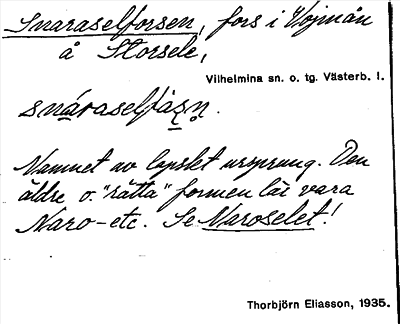 Snaraselforsen, fors i Vojmån
å Storsele,
Vilhelmina sn. o. tg. Västerb. l.
snáraselfåsn.
Namnet av lapskt ursprung. Den
äldre o. "rätta" formen lär vara
Naro-etc. Se Naroselet!
Thorbjörn Eliasson, 1935.